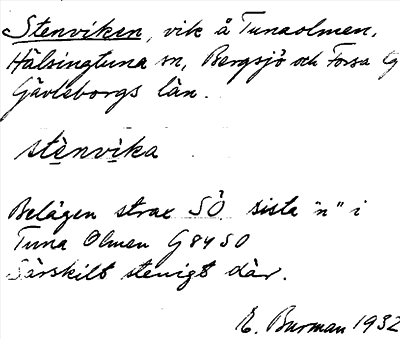 Stenviken, vik å Tunaolmen,
Hälsingtuna sn, Bergsjö och Forsa tg
Gävleborgs län.
stènvika
Belägen strax SÖ. sista "n" i
Tuna Olmen G 84 SO
Särskilt stenigt där.
E. Burman 1932